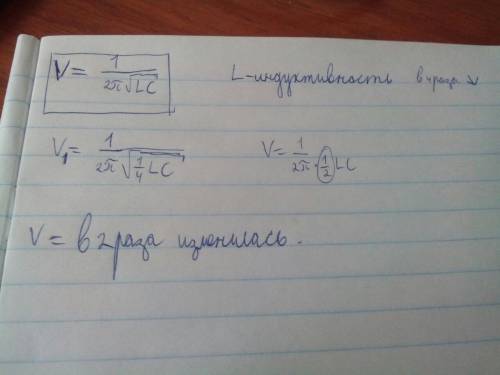 ν = 1 / 2π√LC L-индуктивность в 4 раза ↘
ν₁ = 1 / 2π√1/4 LC ν = 1 / 2π · 1/2 LC
ν = в 2 раза изменилась.